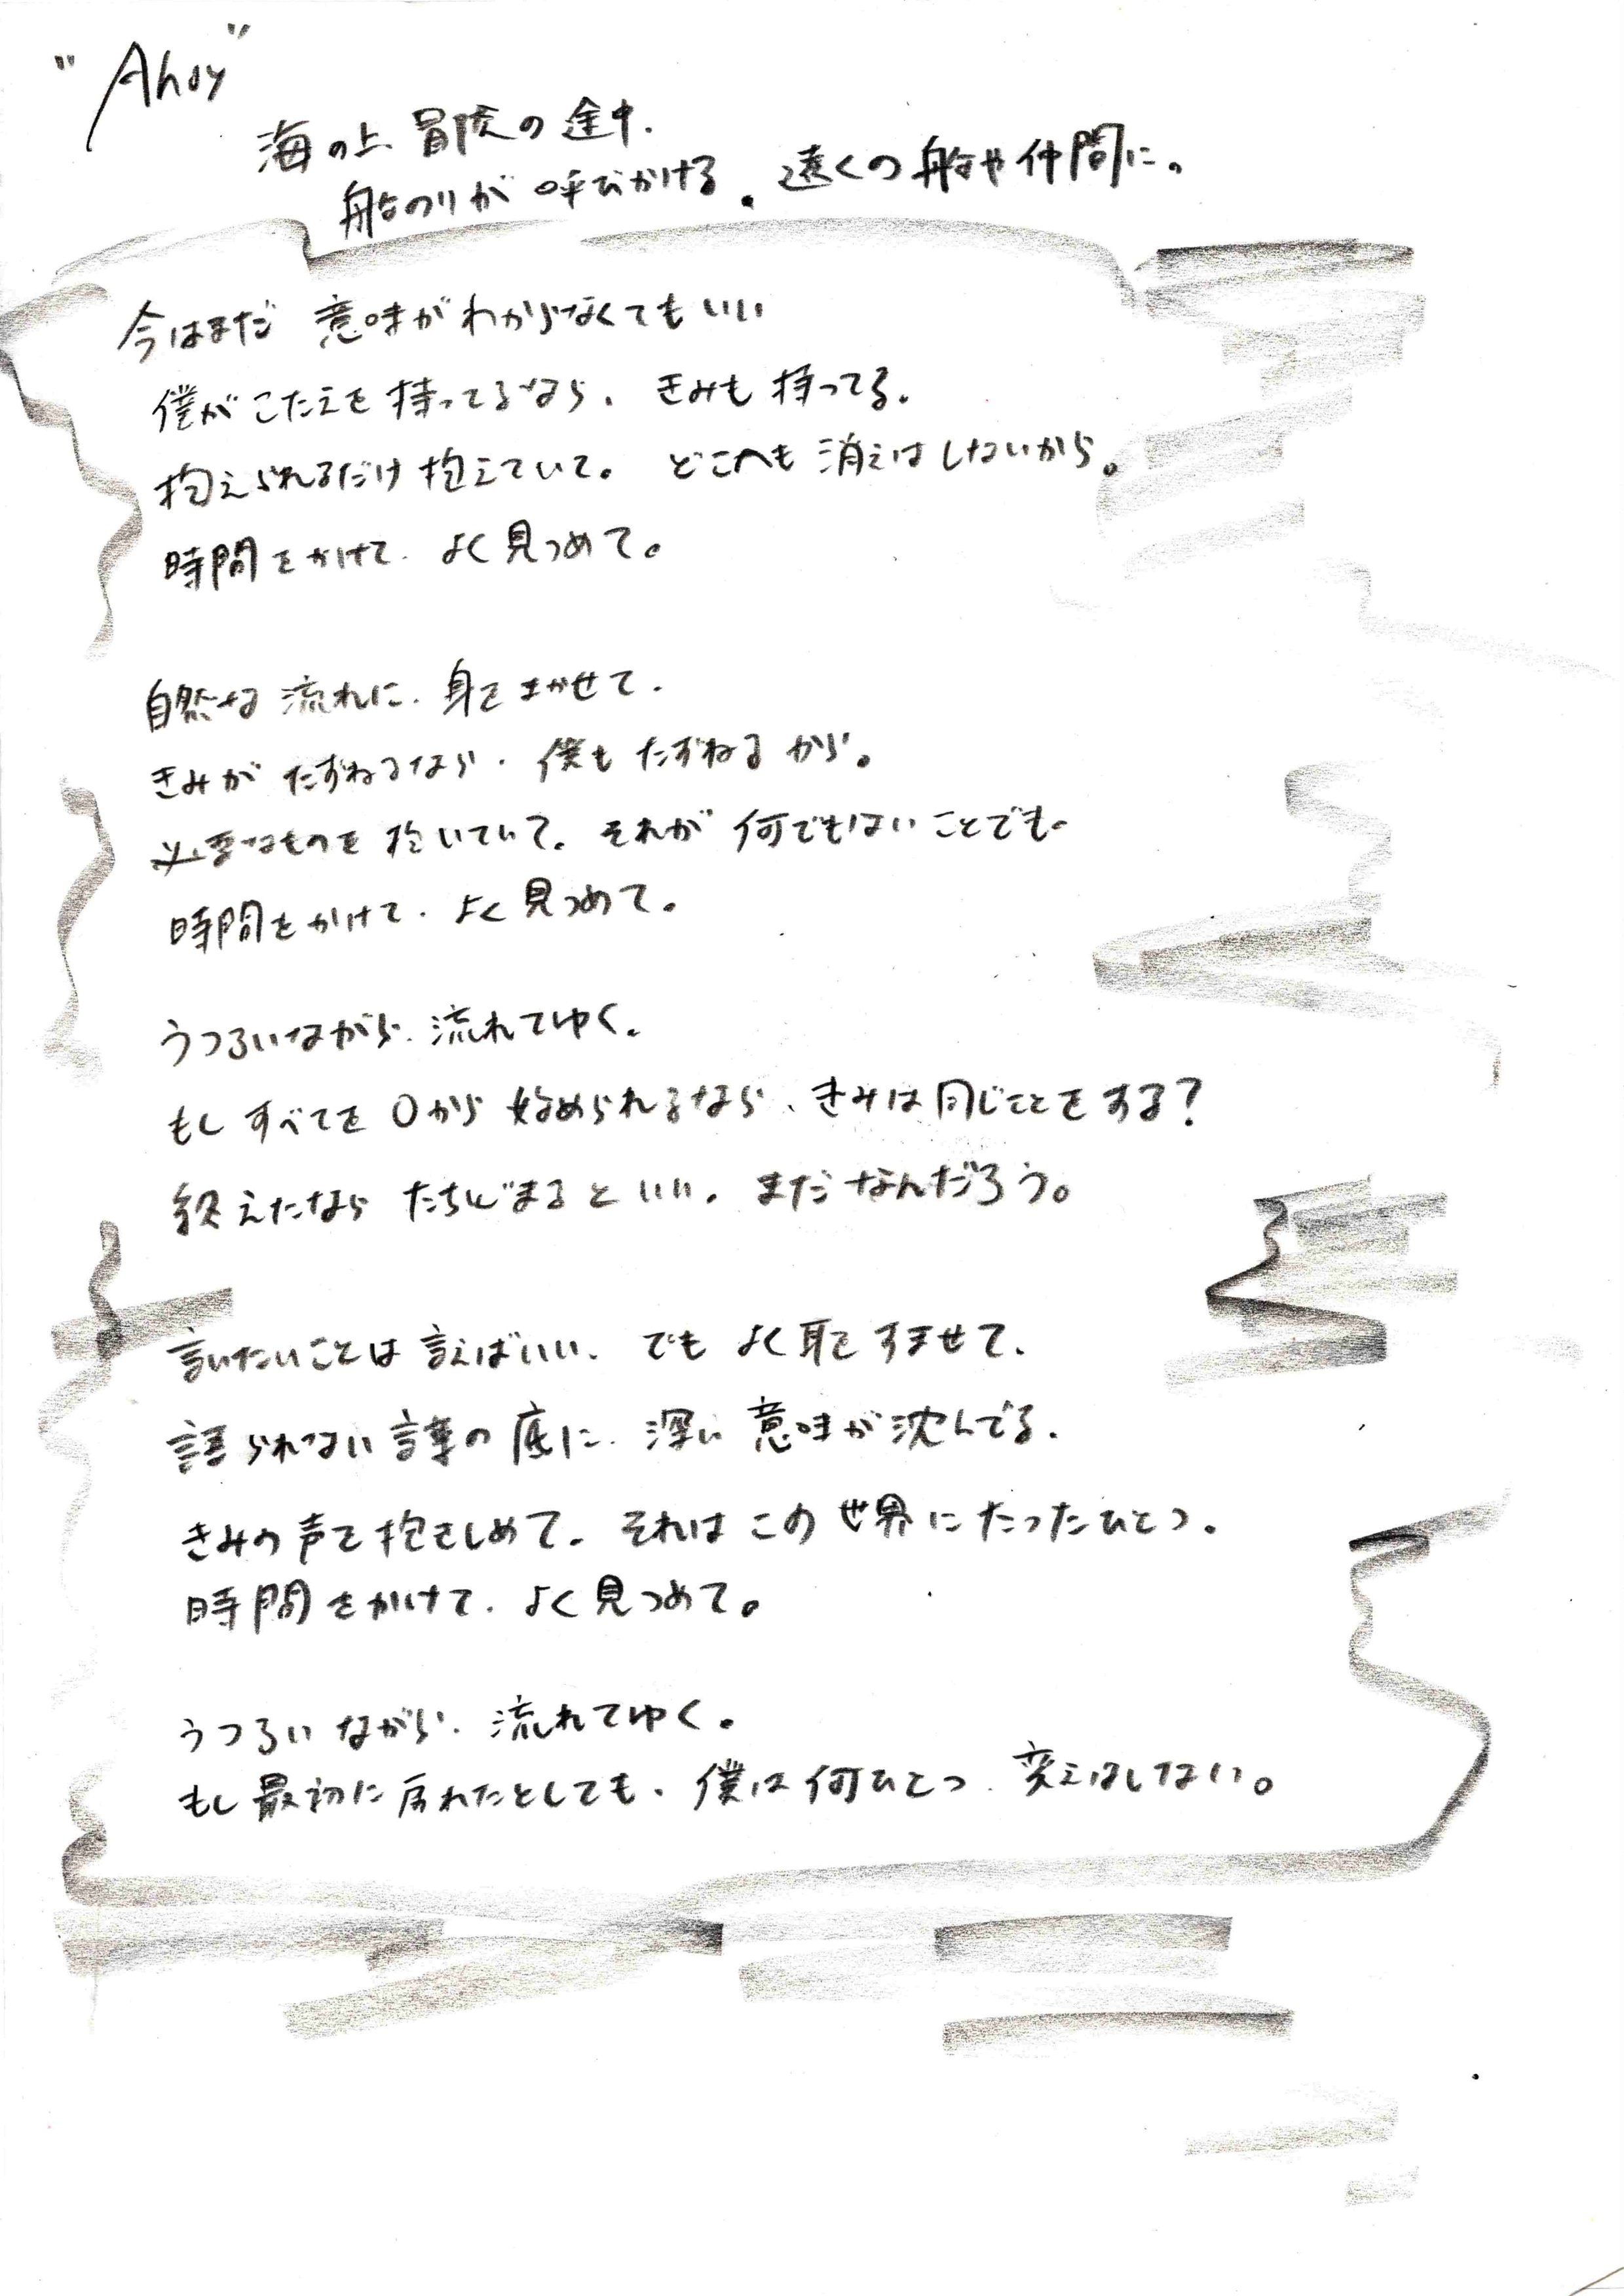 "Ahoy"
海の上、冒険の途中、
船のりが呼びかける。遠くの船や仲間に。
今はまだ 意味がわからなくてもいい
僕がこたえを持ってるなら、きみも持ってる。
抱えられるだけ抱えていて。どこへも消えはしないから。
時間をかけて、よく見つめて。
自然な流れに、身をまかせて、
きみがたずねるなら、僕もたずねるから。
必要なものを抱いていて。それが何でもないことでも。
時間をかけて、よく見つめて。
うつろいながら、流れてゆく。
もしすべてを0から始められるなら、きみは同じことをする?
終えたならたちどまるといい。まだなんだろう。
言いたいことは言えばいい、でもよく耳をすませて、
語られない言葉の底に、深い意味が沈んでる。
きみの声を抱きしめて。それはこの世界にたったひとつ。
時間をかけて、よく見つめて。
うつろいながら、流れてゆく。
もし最初に戻れたとしても、僕は何ひとつ、変えはしない。